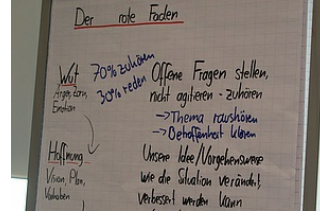 Der rote Faden
Wut
Ärger, Zorn,
Emotion
70% zuhören
30% reden
Offene Fragen stellen,
nicht agitieren - zuhören
→ Thema raushören
→ Betroffenheit klären
Hoffnung
Vision, Plan,
Vorhaben
Unsere Idee/Vorgehensweise
wie die Situation verändert,
verbessert werden kann